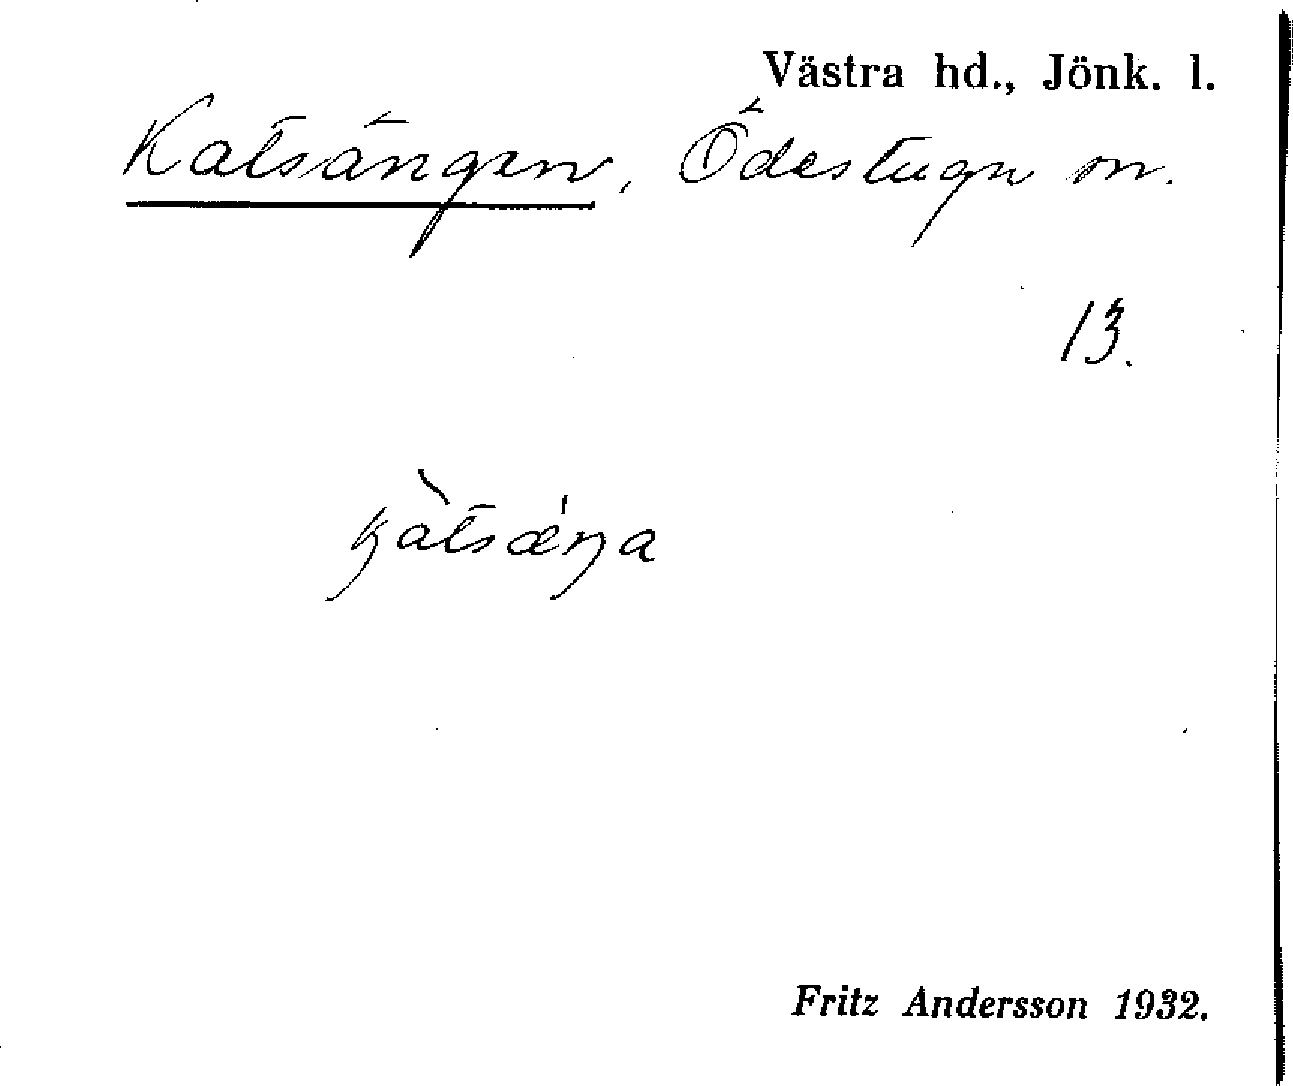 Västra hd., Jönk. l.
Katsängen, Ödestugu sn.
13.
kàtsǽŋa
Fritz Andersson 1932.